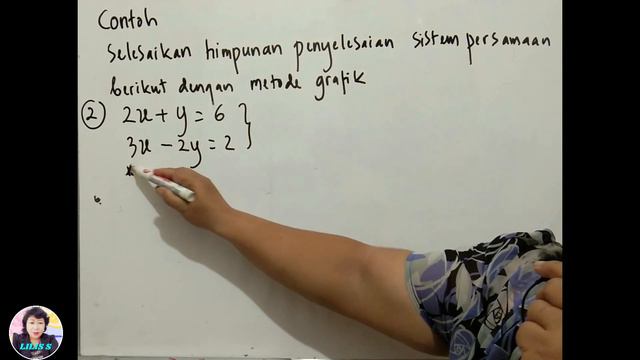 Contoh
Selesaikan himpunan penyelesaian sistem persamaan
berikut dengan metode grafik
② 2x + y = 6 }
3x - 2y = 2
*
LILIS S